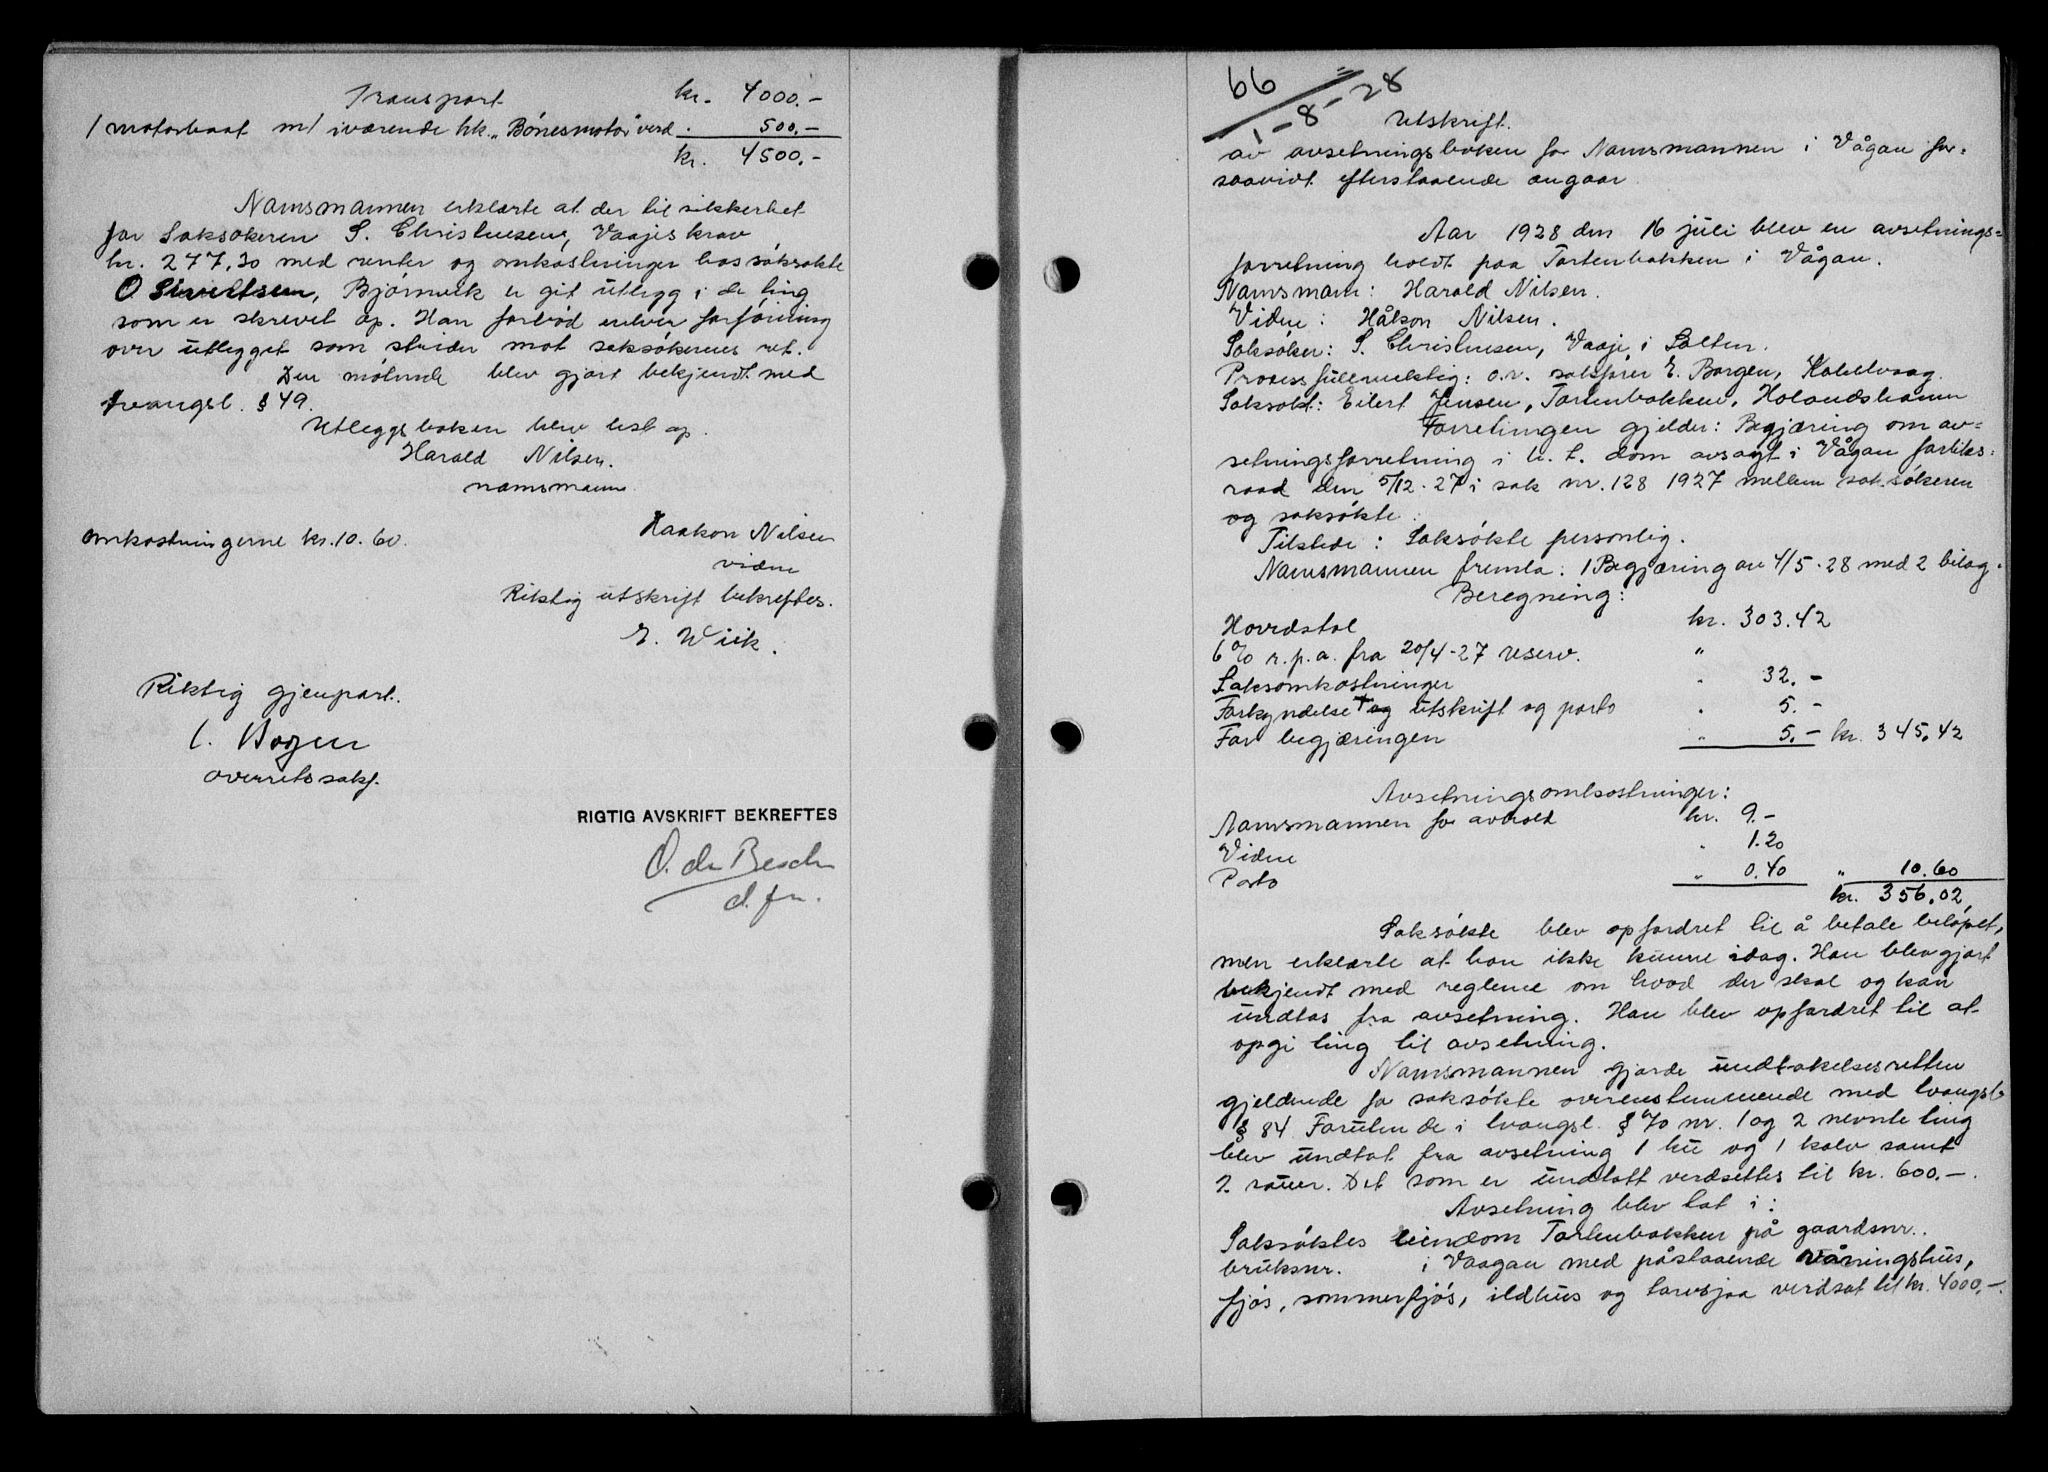 Transport kr. 4000.-
1 motorbaat m/ iværende hk. „Bönesmotor" verd . 500.-
kr. 4500.-
Namsmannen erklærte at der til sikkerhet
for Saksøkeren S. Christensen, Vaajes krav
kr. 277,30 med renter og omkostninger hos saksøkte
O Sivertsen, Bjørnvik er git utlegg i de ting
som er skrevet op. Han forbød enhver forføining
over utlegget som strider mot saksøkerens ret.
Den møtende blev gjort bekjendt med
tvangsl. § 49.
Utleggsboken blev lest op.
Harald Nilsen.
namsmann
Haakon Nilsen
vidne
Omkostningerne kr. 10.60.
Riktig utskrift bekreftes.
E. Wiik.
Riktig gjenpart.
overretssakf.
RIGTIG AVSKRIFT BEKREFTES
d. fm.
66
1-8-28
Utskrift.
av avsetningsboken for Namsmannen i Vågan for-
saavidt efterstaaende angaar
Aar 1928 den 16 juli blev en avsetnings=
forretning holdt paa Tortenbakken i Vågan.
Namsmann: Harald Nilsen.
Vidne: Håkon Nilsen.
Saksøker: S. Christensen, Vaaje i Salten.
Prosessfullmektig: o.r. sakfører E. Borgen, Kabelvaag.
Saksøkt: Eilert Jensen, Tortenbakken, Holandshamn
Forretningen gjelder: Begjæring om av=
setningsforretning i h. t. dom avsagt i Vågan forliks=
raad den 5/12-27 i sak nr. 128 1927 mellem saksøkeren
og saksøkte.
Tilstede: Saksøkte personlig.
Namsmannen fremla: 1 Begjæring av 4/5-28 med 2 bilag.
Beregning:
Hovedstol kr. 303.42
6% r.p.a. fra 20/4-27 reserv. "
Saksomkostninger " 32.-
Forkyndelse + og utskrift og porto " 5.-
For begjæringen " 5.- kr. 345,42
Avsetningsomkostninger:
Namsmannen for avhold kr. 9.-
Vidne " 1.20
Porto " 0.40 " 10.60
kr. 356,02
Saksøkte blev opfordret til å betale beløpet,
men erklærte at han ikke kunne idag. Han blev gjort
bekjendt med reglene om hvad der skal og kan
undtas fra avsetning. Han blev opfordret til at
opgi ting til avsetning.
Namsmannen gjorde undtakelsesretten
gjeldende for saksøkte overensstemmende med tvangsl.
§ 84 Foruten de i tvangsl. § 70 nr. 1 og 2 nevnte ting
blev undtat fra avsetning 1 ku og 1 kalv samt
2 sauer. Det som er undtatt verdsettes til kr. 600.-.
Avsetning blev tat i:
Saksøktes eiendom Tortenbakken på gaardsnr..
bruksnr. i Vaagan med påstaaende våningshus,
fjøs, sommerfjøs, ildhus og torvsjaa verdsat til kr. 4000,-.